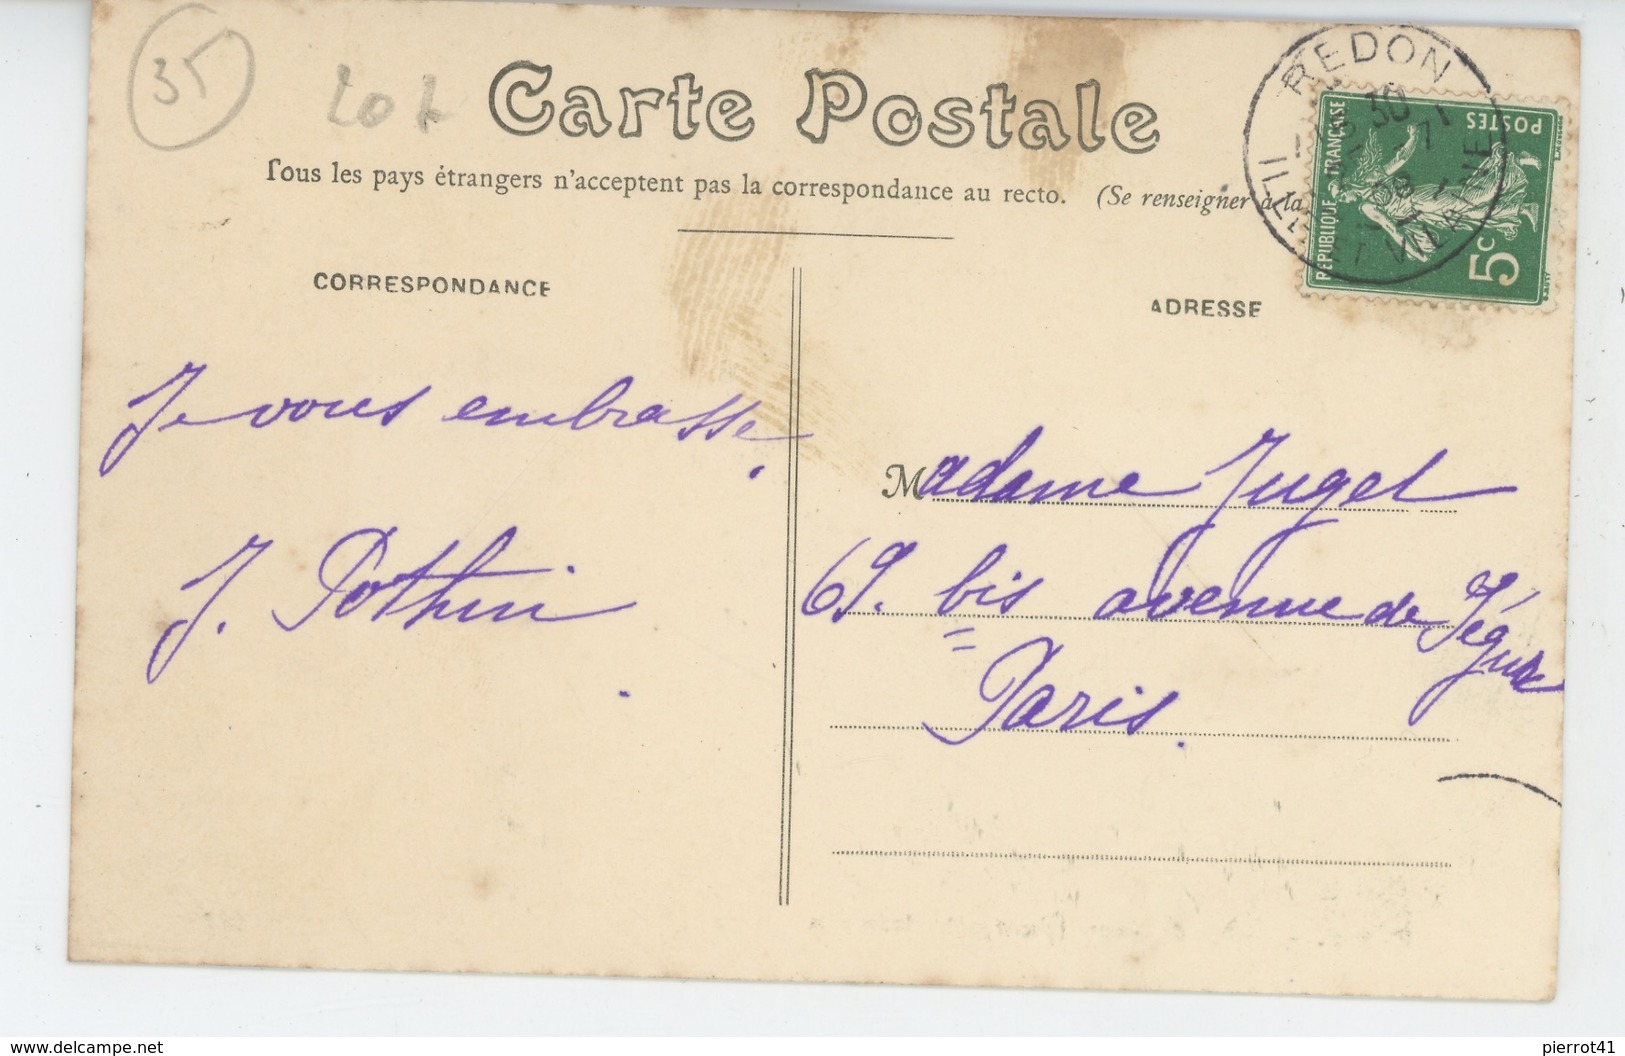 35
Carte Postale
Tous les pays étrangers n'acceptent pas la correspondance au recto. (Se renseigner à la
REDON
ILLE ET VILAINE
REPUBLIQUE FRANÇAISE
POSTES
5c
CORRESPONDANCE
ADRESSE
Je vous embrasse.
J. Pothin.
Madame Jugel
69. bis avenue de Ségur
Paris.
www.delcampe.net
pierrot41